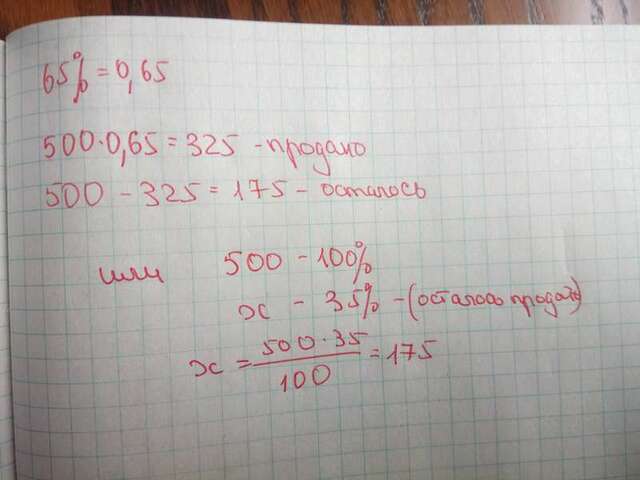 65% = 0,65
500·0,65 = 325 - продано
500 - 325 = 175 - осталось
или
500 - 100%
x - 35% - (осталось продать)
x = 500·35 / 100 = 175